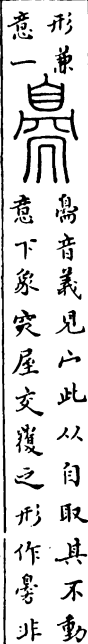 形兼
意一
臱
臱音義見宀此从自取其不動
意下象突屋交覆之形作臱非